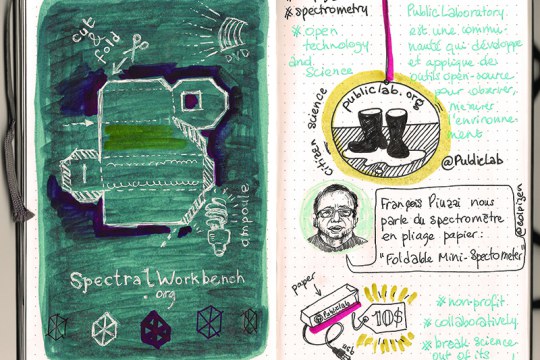 cut
&
fold
DVD
ampoule
SpectralWorkbench
.org
* spectrometry
* open
technology
and
Science
Public Laboratory
est une commu-
nauté qui développe
et applique des
outils open-source
pour observer,
mesurer
l'environne-
ment
citizen science
publiclab.org
@PublicLab
François Piuzzi nous
parle du spectromètre
en pliage papier:
"Foldable Mini-Spectometer"
paper
@Publiclab
10$
usb
* non-profit
* collaboratively
* break science
out of its